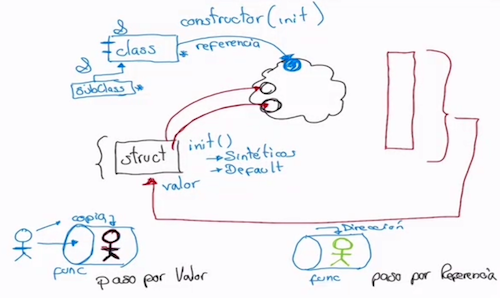 constructor (init)
class
referencia
SubClass
struct
init()
→Sintéticos
→Default
valor
copia
func
paso por Valor
Dirección
func
paso por Referencia